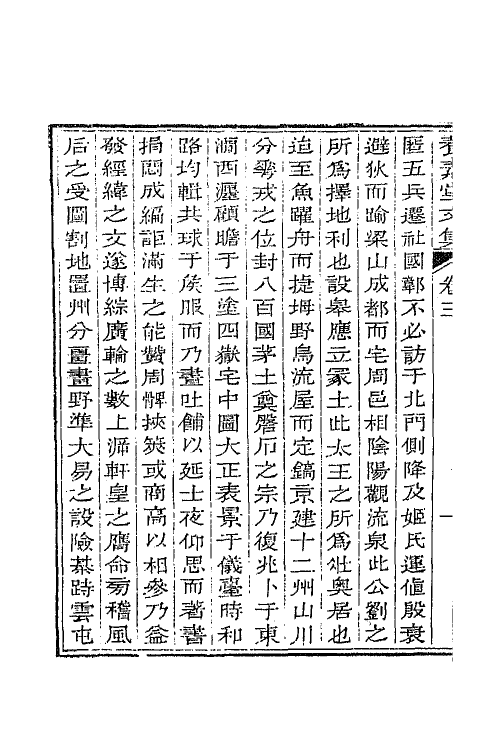 養素堂文集 卷三 一
匽五兵遷社國鄣不必訪于北門側降及姬氏運值殷衰
避狄而踰梁山成都而宅周邑相陰陽觀流泉此公劉之
所爲擇地利也設皋應立冢土此太王之所爲壯奧居也
迨至魚躍舟而捷坶野烏流屋而定鎬京建十二州山川
分戒之位封八百國茅土奠石之宗乃復兆卜于東
澗西瀍顧瞻于三塗四嶽宅中圖大正表景于儀臺時和
路均輯共球于矦服而乃晝吐餔以延士夜仰思而著書
揭成編詎滿生之能贊周髀挾筴或商高以相參乃益
發經緯之文遂博綜廣輪之數上溯軒皇之膺命旁稽風
后之受圖割地置州分畺畫野準大易之設險棊跱雲屯